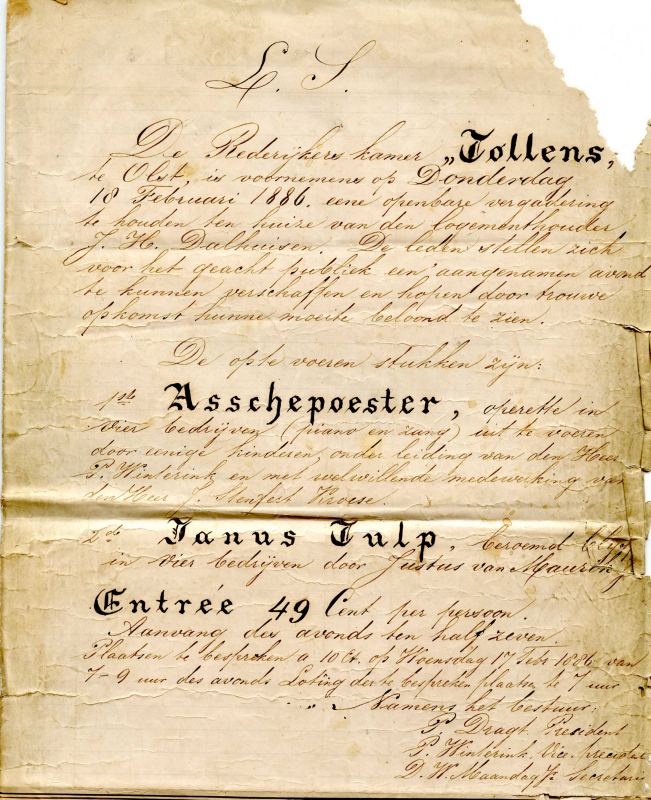 L. S.
De Rederijkers kamer „Tollens„
te Olst, is voornemens op Donderdag
18 Februari 1886, eene openbare vergadering
te houden ten huize van den logementhouder
J. H. Dalhuisen. De leden stellen zich
voor het geacht publiek een aangenamen avond
te kunnen verschaffen en hopen door trouwe
opkomst hunne moeite beloond te zien.
De opte voeren stukken zijn:
1ste Asschepoester, operette in
vier bedrijven (piano en zang) uit te voeren
door eenige kinderen, onder leiding van den Heer
P. Winterink en met welwillende medewerking van
den Heer J. Kroese.
2de Janus Tulp, beroemd blijsp
in vier bedrijven door Justus van Maurik
Entrée 49 Cent per persoon.
Aanvang des avonds ten half zeven.
Plaatsen te bespreken a 10 Ct. op Woensdag 17 Febr 1886 van
7-9 uur des avonds Loting der te bespreken plaatsen te 7 uur
„ „ Namens het bestuur:
P. Dragt President
P. Winterink, Vice President
D. W. Maandag Jr. Secretaris